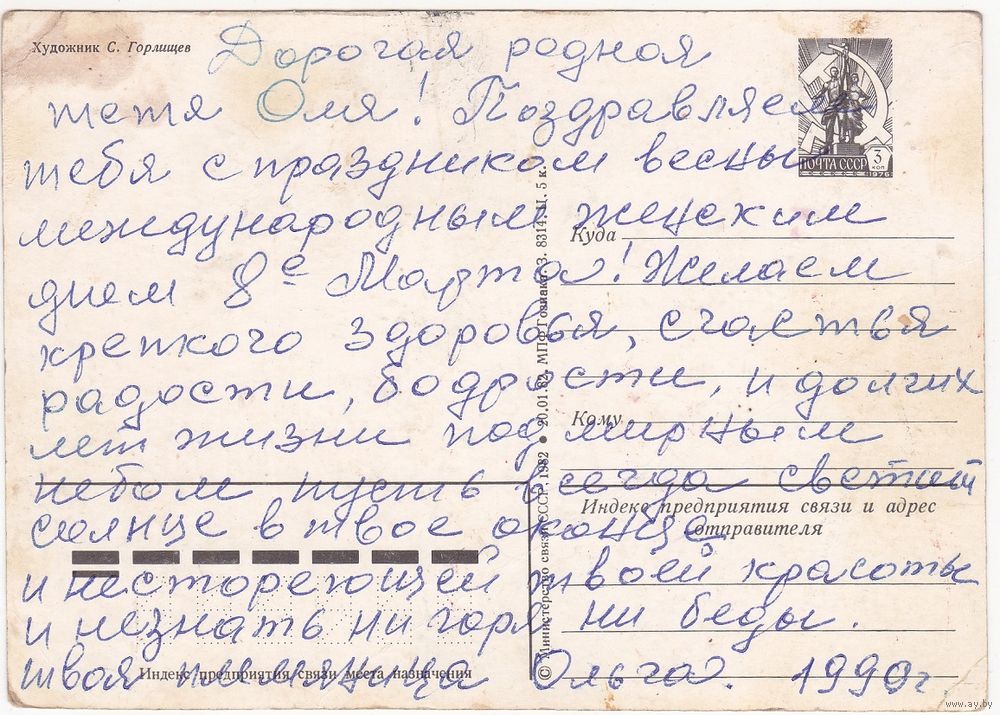 Художник С. Горлищев
Дорогая родная
тетя Оля! Поздравляем
тебя с праздником весны
международным женским
днем 8е Марта! Желаем
крепкого здоровья, счастья
радости, бодрости, и долгих
лет жизни под мирным
небом пусть всегда светит
солнце в твое оконце
и нестореющей твоей красоты
и незнать ни горя ни беды.
твоя племяница Ольга. 1990г.
ПОЧТА СССР 3 коп
1976
Куда
Кому
Индекс предприятия связи и адрес
отправителя
Индекс предприятия связи места назначения
© Министерство связи СССР, 1982 • 20.01.82. МПФ Гознака. З. 8314. Ц. 5 к.
www.ay.by